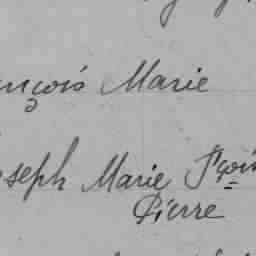 nçois Marie
seph Marie Fçois
Pierre